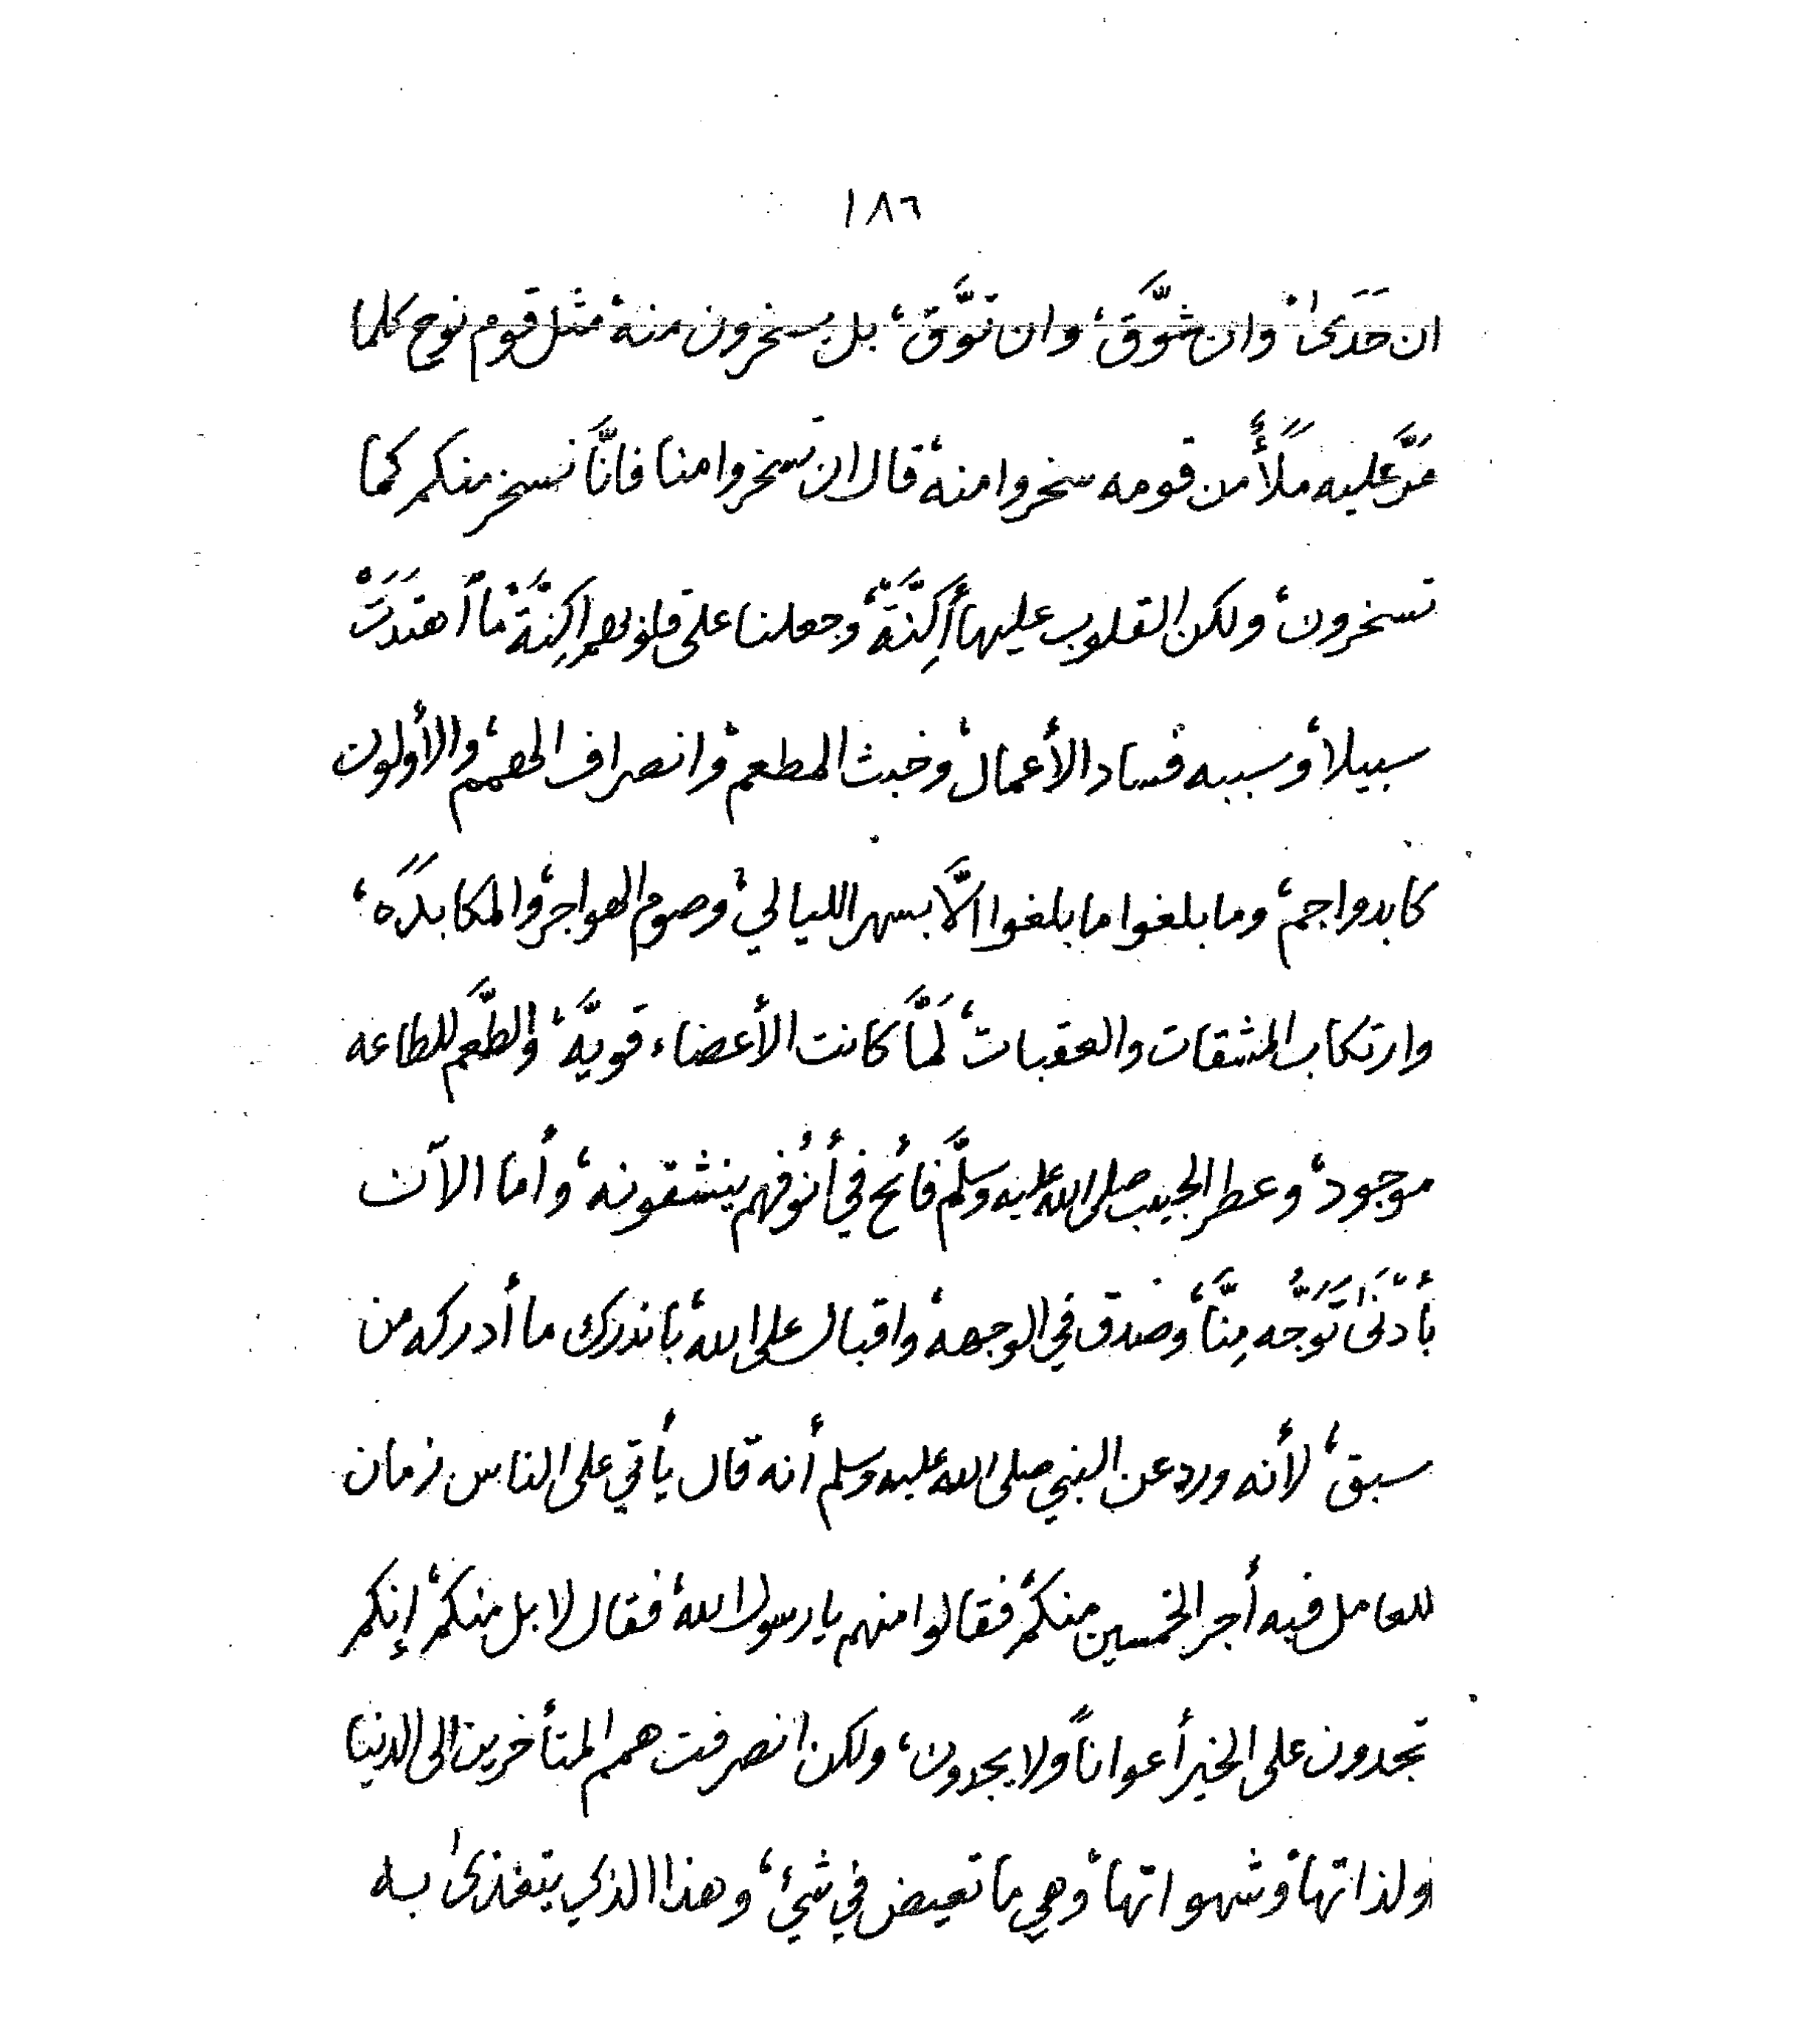 ١٨٦
ان حَدَىٰ، وان شوَّق، وان توَّق، بل يسخرون منه، مثل قوم نوح كلما
مَرَّ عليه ملأً من قومه سخروا منه، قال ان تسخروا منا فانَّا نسخر منكم كما
تسخرون، ولكن القلوب عليها أَكِنَّة، وجعلنا على قلوبهم اكِنَّة، ما أهتَدَتْ
سبيلا، وسببه فساد الأعمال، وخبث المطعم، وانصراف الهمم، والأولون
كابدوا جم، وما بلغوا ما بلغوا الَّا بسهر الليالي، وصوم الهواجر، والمكابدَه،
وارتكاب المشقات والعقبات، لَمَّا كانت الأعضاء قويَّه، والطَّعم للطاعه
موجود، وعطر الحبيب صلى الله عليه وسلَّم فائح في أنُوفهم ينشقونه، وأما الآن
بأدْنَىٰ تَوَجُّه مِنَّا، وصدق في الوجهه، واقبال على الله، باندرك ما أدركه من
سبق، لأنه ورد عن النبي صلى الله عليه وسلم أنه قال يأتي على الناس زمان
للعامل فيه أجر الخمسين منكم، فقالوا منهم يا رسول الله، فقال لا بل منكم، إنكم
تجدون على الخير أعواناً ولا يجدون، ولكن انصرفت همم المتأخرين الى الدنيا
ولذاتها، وشهواتها، وهي ما تعيض في شيء، وهذا الذي يتغذىٰ به